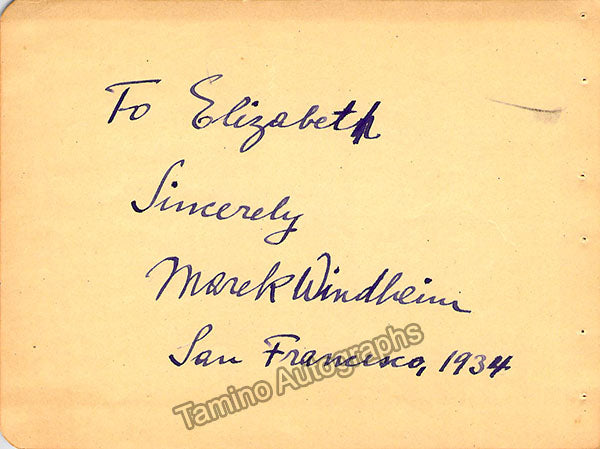 To Elizabeth
Sincerely
Marek Windheim
San Francisco, 1934
Tamino Autographs